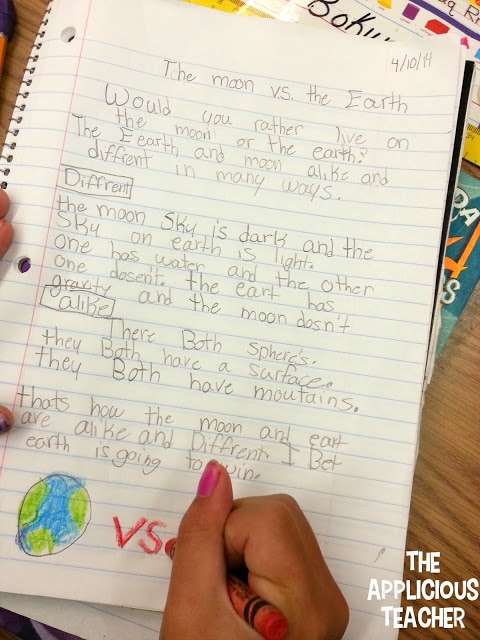 Boku
4/10/14
The moon vs. the Earth
Would you rather live on
the moon or the earth?
The Eearth and moon alike and
diffrent in many ways.
Diffrent
the moon sky is dark and the
sky on earth is light.
one has water and the other
one dosent. the eart has
gravity and the moon dosn't
alike
There Both sphere's.
they Both have a surface.
they Both have moutains.
thats how the moon and eart
are alike and Diffrent I Bet
earth is going to win.
VS.
THE
APPLICIOUS
TEACHER